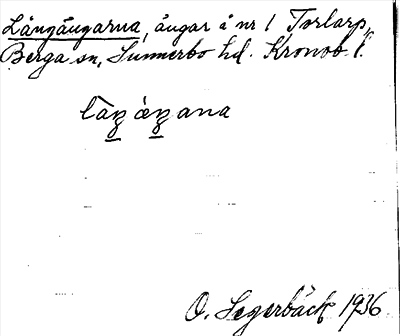 Långängarna, ängar å nr 1 Torlarp,
Berga sn, Sunnerbo hd. Kronob. l.
O. Segerbäck 1936